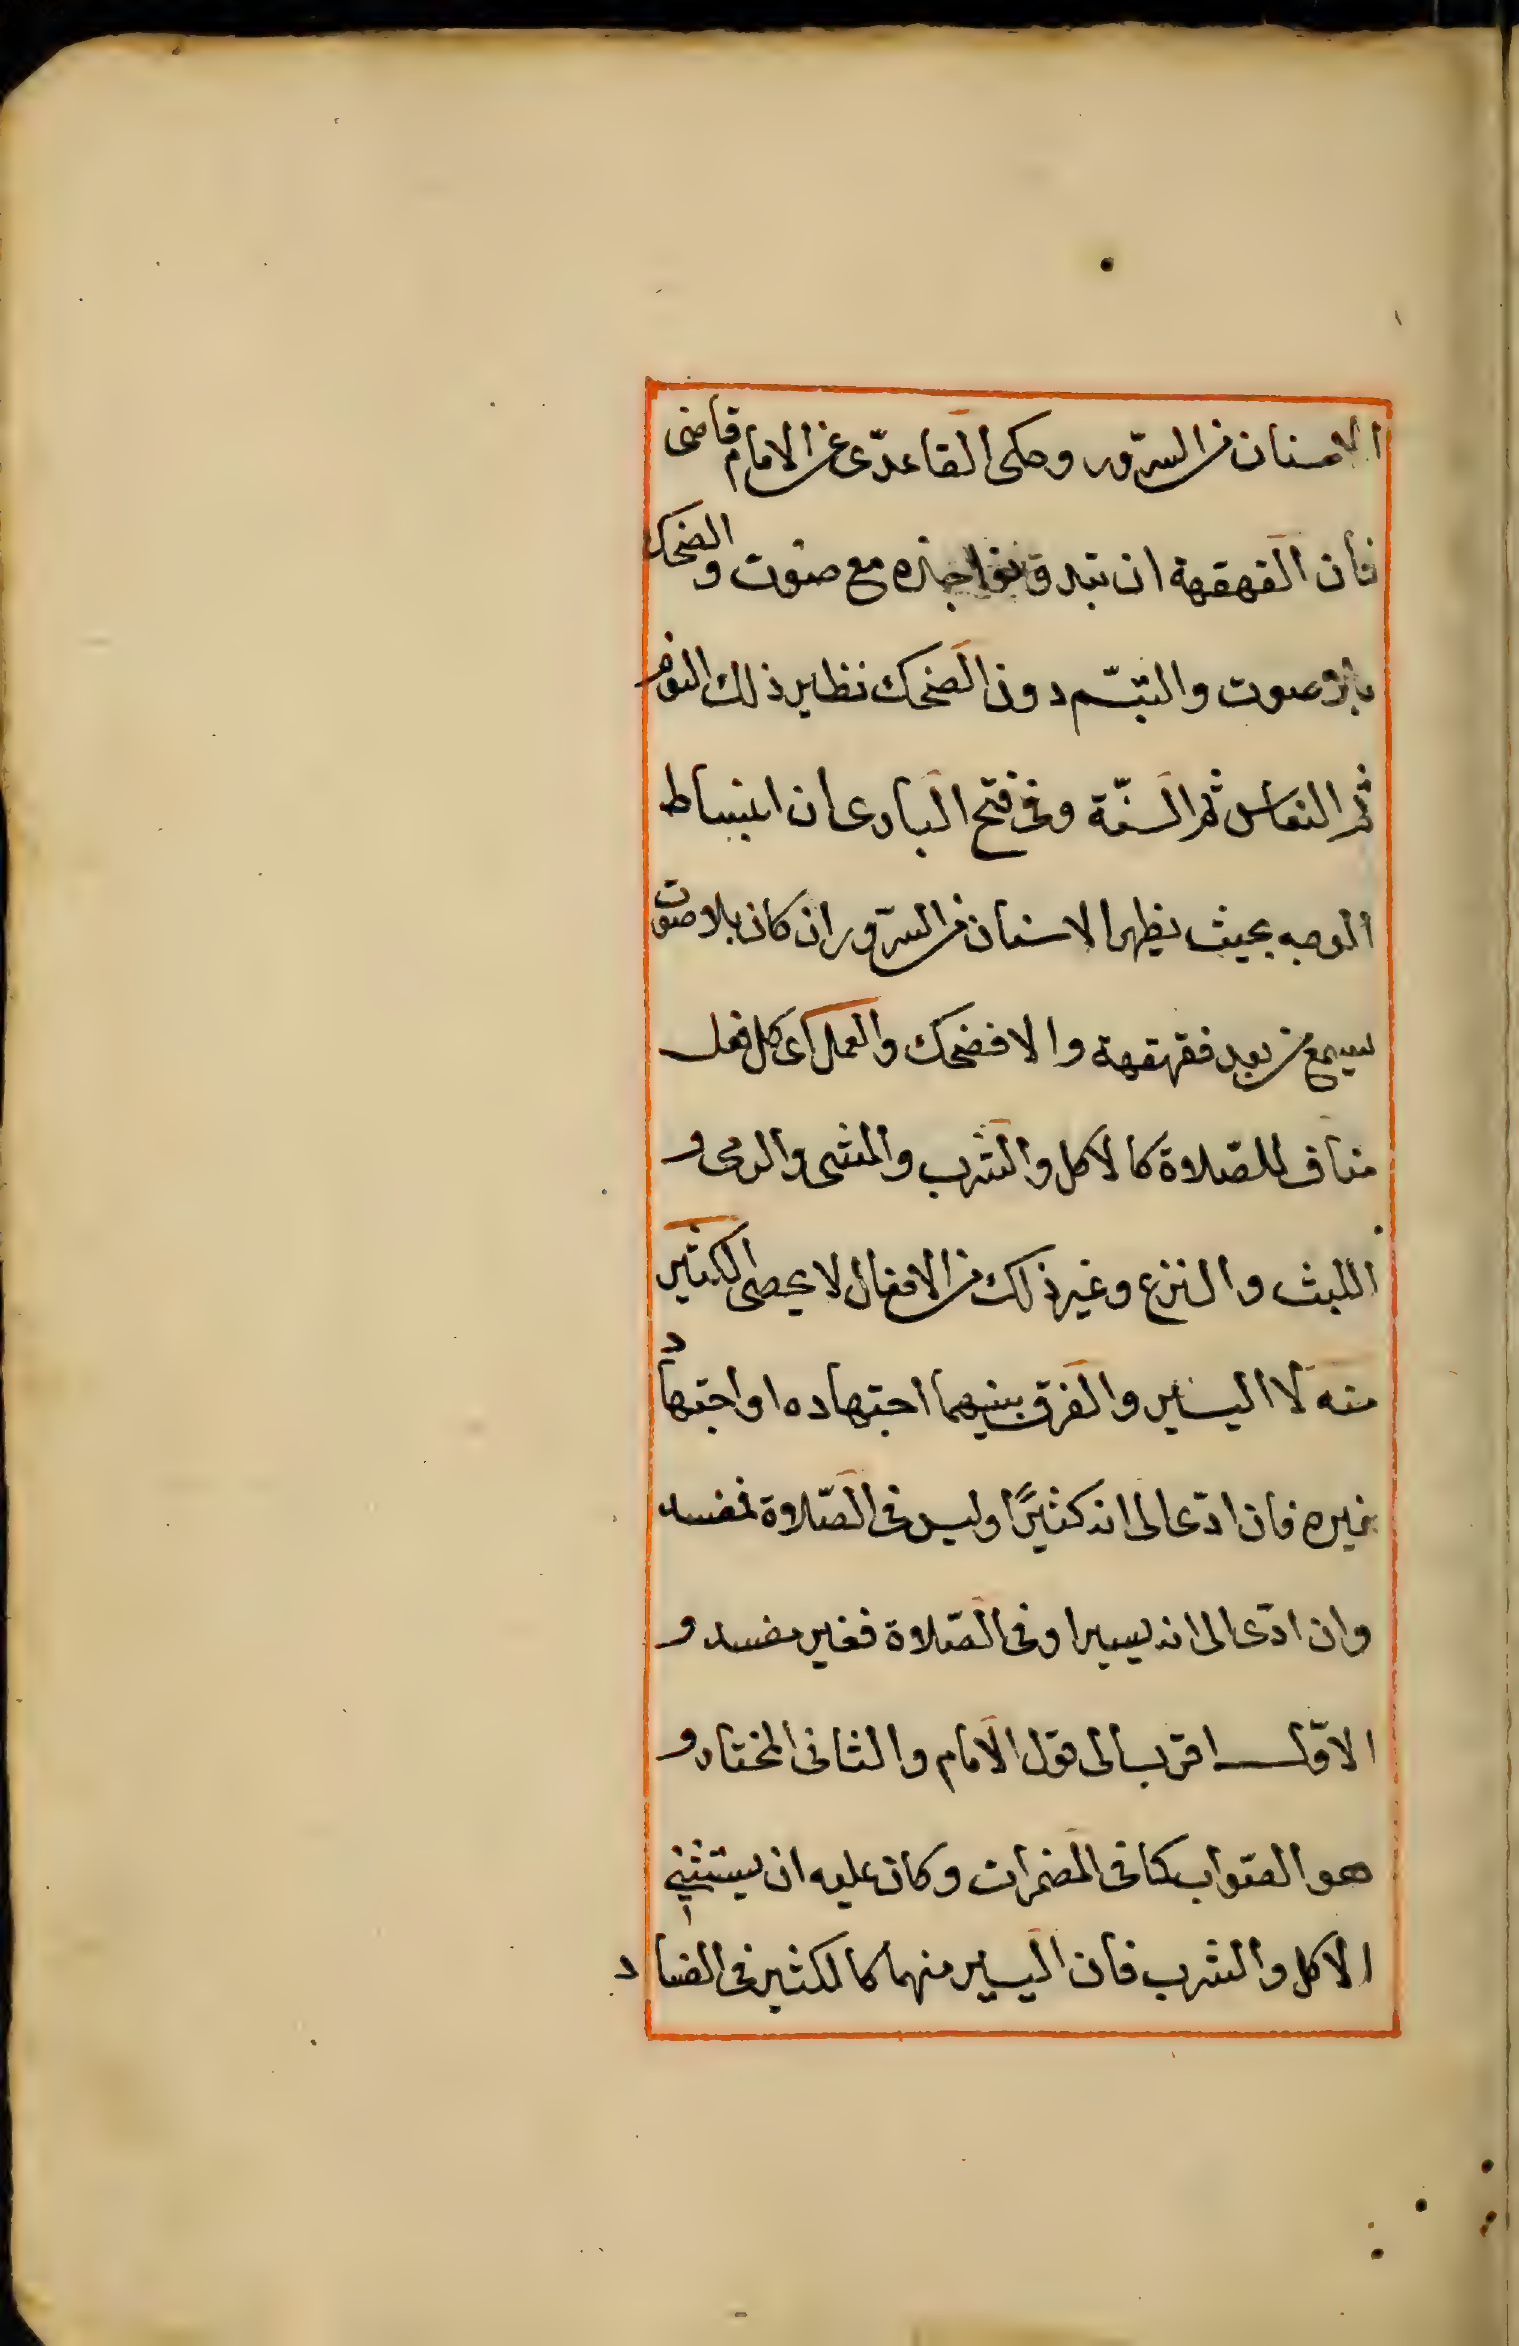 الاسنان من السرّور وحكى القاعدّى عن الامام قاضى
فان القهقهة ان تبدو نواجذه مع صوت والضحك
بلا صوت والتبسّم دون الضحك نظير ذلك النوم
ثم النعاس ثم السنّة وفى فتح البارى ان انبساط
الوجه بحيث يظهر الاسنان من السرّور ان كان بلا صوت
يسمع من بعيد فقهقهة والا فضحك والعمل اى كل فعل
مناف للصّلاة كالاكل والشرب والمشى والرمى و
اللبث والنزع وغير ذلك من الافعال لا يحصى الكثير
منه لا اليسير والفرق بينهما اجتهاده او اجتهاد
غيره فان ادّى الى انه كثيرًا وليس فى الصّلاة فمفسد
وان ادّى الى انه يسيرا وفى الصّلاة فغير مفسد و
الاوّل اقرب الى قول الامام والثانى المختار و
هو الصّواب كما فى المضمرات وكان عليه ان يستثنى
الاكل والشرب فان اليسير منهما كالكثير فى الفساد